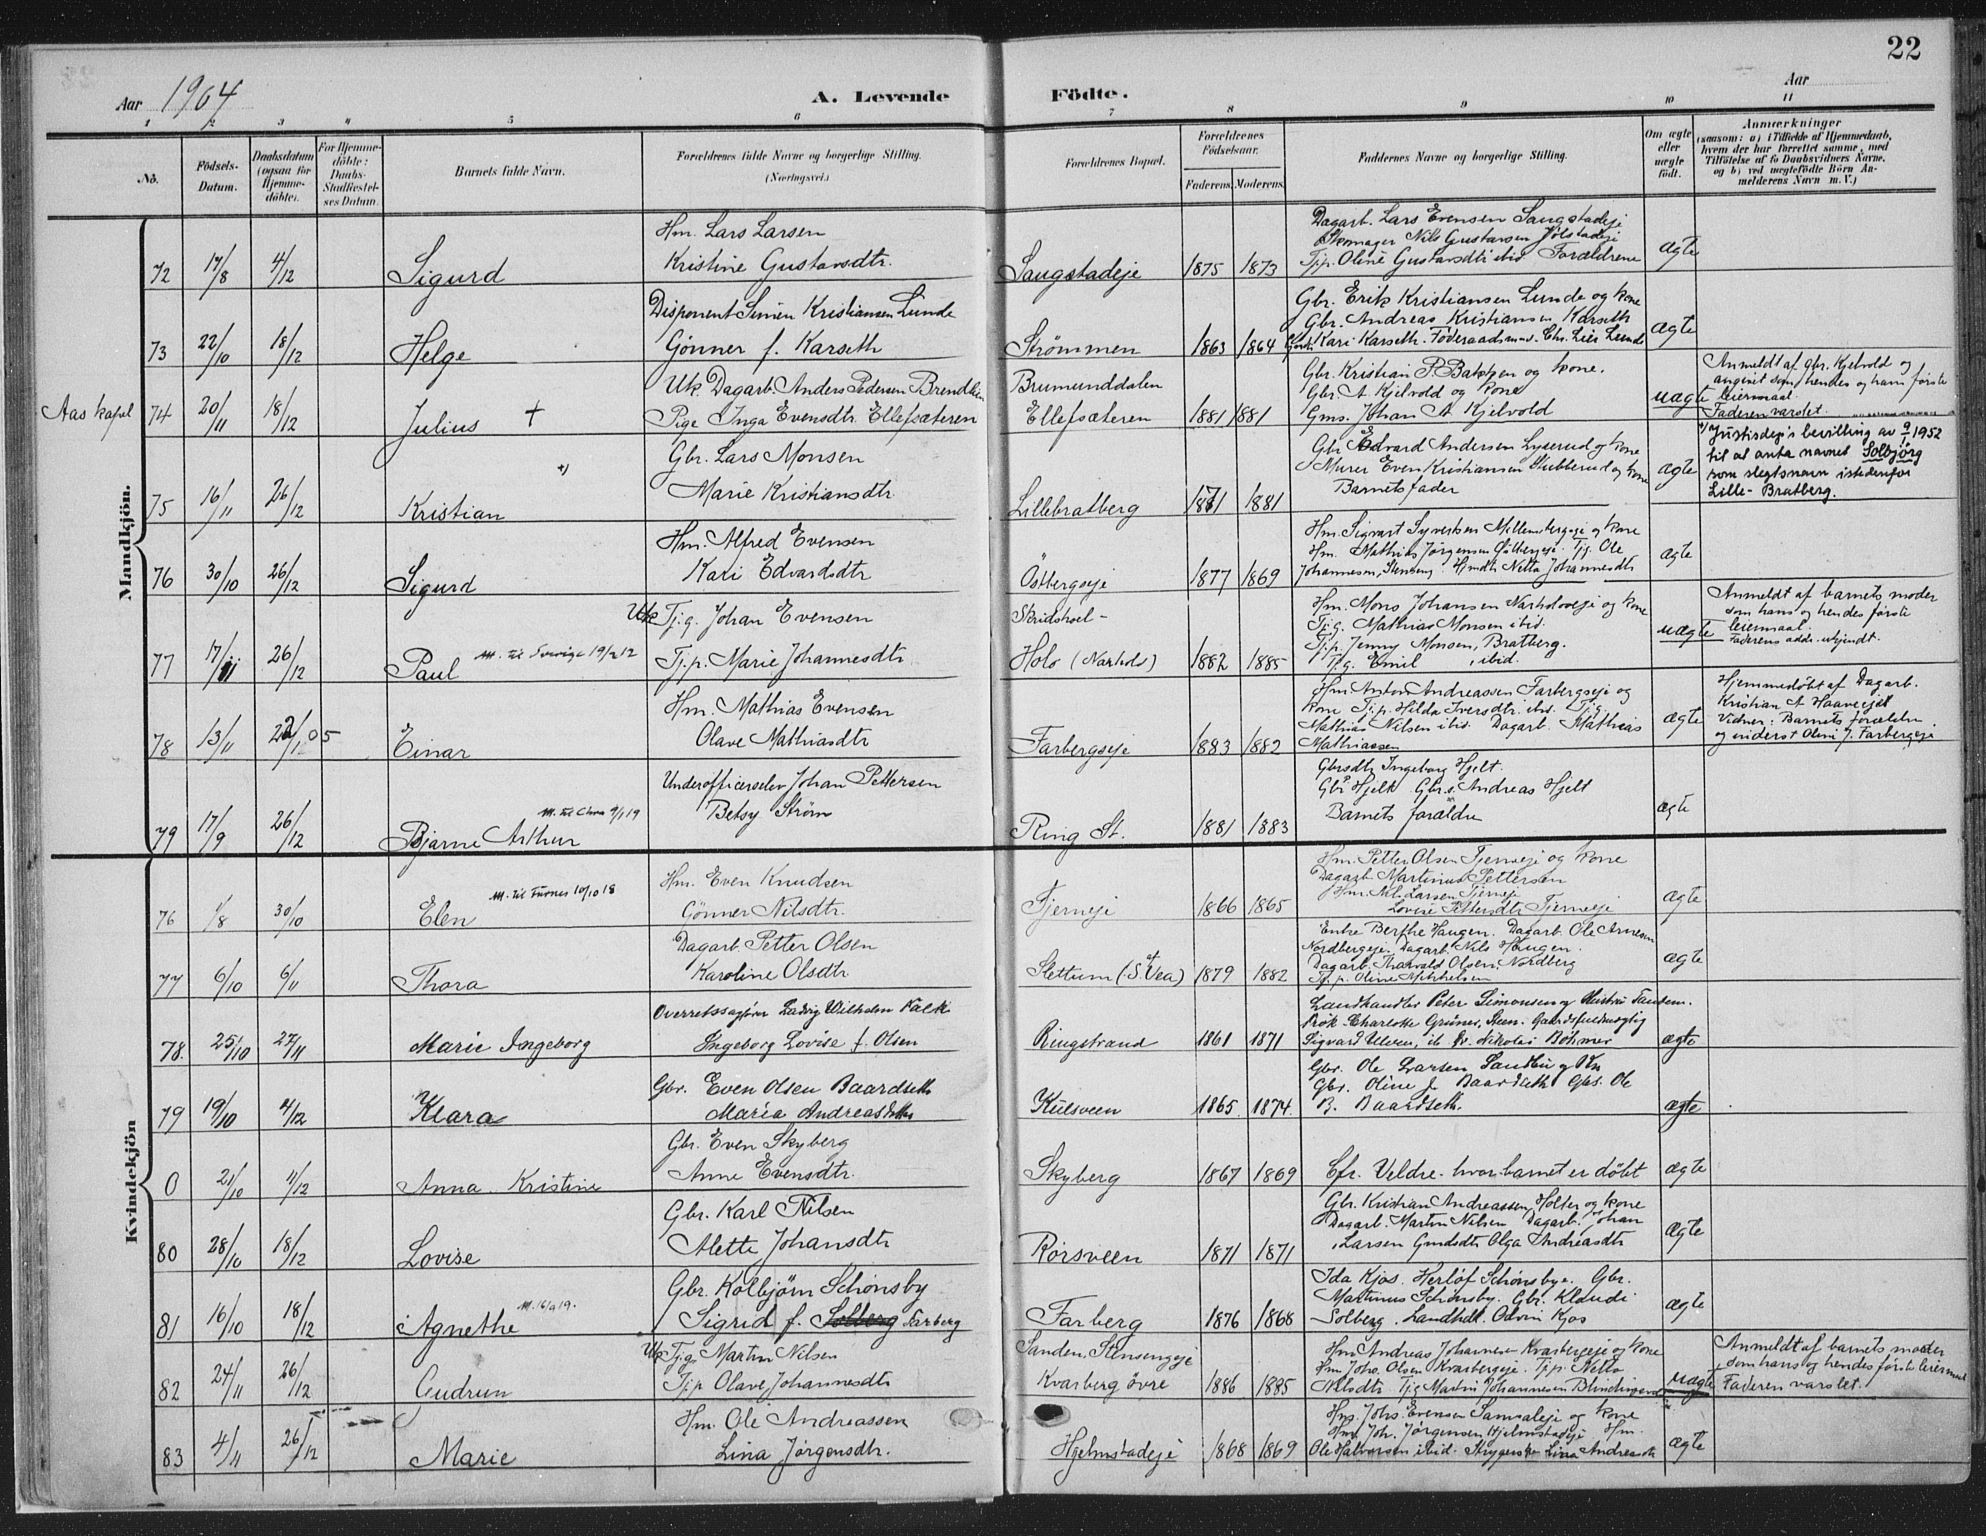 22
Aar 1904
A. Levende
Födte.
Aar
1 2 3 4 5 6 7 8 9 10 11
No.
Födsels-Datum.
Daabsdatum (ogsaa for Hjemme-döbte).
For Hjemme-döbte: Daabs-Stadfæstel-ses Datum.
Barnets fulde Navn.
Forældrenes fulde Navne og borgerlige Stilling.
(Næringsvei.)
Forældrenes Bopæl.
Forældrenes Födselsaar.
Faderens. Moderens.
Faddernes Navne og borgerlige Stilling.
Om ægte eller uægte födt.
Anmærkninger
(saasom: a) i Tilfælde af Hjemmedaab, hvem der har forrettet samme, med Tilföielse af to Daabsvidners Navne, og b) ved uægtefödte Börn Anmelderens Navn m. V.)
Mandkjön.
Hm. Lars Larsen
Dagarb. Lars Evensen Saugstadeje
Skomager Nils Gustavsen
72 17/8 4/12 Sigurd Kristine Gustavsdtr. Saugstadeje 1875 1873 Tj.p. Oline Gustavsdtr ibid Forældrene ægte
Disponent Simen Kristiansen Lunde
Gbr. Erik Kristiansen Lunde og kone
Gbr. Andreas Kristiansen Karseth
73 22/10 18/12 Helge Gönner f. Karseth Strömmen 1863 1864 Kari Karseth. Föderaadsmand Chr. Lunde ægte
Aas kapel
Uk. Dagarb. Anders Pedersen Brendlien Brumunddalen
Gbr. Kristian P. Bakken og kone.
Gbr. A Kjelvold og kone
74 20/11 18/12 Julius + Pige Inga Evensdtr. Ellefsæteren Ellefsæteren 1881 1881 Gms. Johan A Kjelvold uægte
Anmeldt af Gbr. Kjelvold og
angivet som hendes og hans förste
leiermaal.
Faderen varslet.
Gbr. Lars Monsen
Gbr Edvard Andersen Lyserud og kone
Murer Even Kristiansen Stubberud og kone
75 16/11 26/12 Kristian x) Marie Kristiansdtr. Lillebratberg 1871 1881 Barnets fader ægte
x) Justisdep's bevilling av 9/1 1952
til at anta navnet Solbjörg
som slegtsnavn istedenfor
Lille-Bratberg.
Hm. Alfred Evensen
Hm. Sigvart Syversen og kone
Hm. Mathias Jørgensen Østbergeje Tj.g. Ole
76 30/10 26/12 Sigurd Kari Edvardsdtr Östbergseje 1877 1869 Johannesen, Stenseng Hmdtr. Netta Johannesdtr ægte
Uk. Tj.g. Johan Evensen Skridshol-
Hm. Mons Johansen Narholoeje og kone
Tj.g. Mathias Monsen ibid.
77 17/11 26/12 Paul M. til Sverige 19/2 12 Tj.p. Marie Johannesdtr. Holo (Narholo) 1882 1885 Tj.p. Jenny Monsen, Bratberg.
Tj.g. Emil , ibid. uægte
Anmeldt af barnets moder
som hans og hendes förste
leiermaal.
Faderens adr. ukjendt.
Hm. Mathias Evensen
Hm. Anton Andreassen Farbergseje og
kone Tj.p. Hilda Iversdtr. ibd. Tj.g.
Mathias Nilsen ibid. Dagarb. Mathias
78 13/11 22/1 05 Einar Olave Mathiasdtr Farbergseje 1883 1882 Mathiassen ægte
Hjemmedöbt af Dagarb.
Kristian A Haaveeje
Vidner: Barnets forældre
og enderst Oline J. Farbergeje
Underofficerselev Johan Pettersen
Gbrsdtr Ingeborg Hjelt.
Gbr Hjelt Gbr.s. Andreas Hjelt
79 17/9 26/12 Bjarne Arthur M. til Chra 9/1 19 Betsy Ström Ring St. 1881 1883 Barnets forældre ægte
Kvindekjön
Hm. Even Knudsen
Hm. Petter Olsen Tjerneje og kone
Dagarb Martinus Pettersen
Hm. Nils Larsen Tjerneje
76 1/8 30/10 Elen M. til Furnes 10/10 18 Gönner Nilsdtr. Tjerneje 1866 1865 Lovise Pettersdtr Tjerneje ægte
Dagarb. Petter Olsen
Enke Berthe Haugen. Dagarb. Ole Arnesen
Nordbergeje. Dagarb. Nils Haugen.
Dagarb. Thorvald Olsen, Nordberg
77 6/10 6/11 Thora Karoline Olsdtr Slettum (S. Vea) 1879 1882 Tj.p. Oline Mikkelsen ægte
Overretssagförer Ludvig Wilhelm Falck
Landhandler Peter Simonsen og Hustru Tandem.
Frök. Charlotte Grüner, Steen. Gaardsfuldmægtig
78. 25/10 27/11 Marie Ingeborg Ingeborg Lovise f. Olsen Ringstrand 1861 1871 Sigvard Ulven, ib Nikolai Böhmer ægte
Gbr. Even Olsen Baardseth
Gbr. Ole Larsen Sandbu og Kn
Gbr. Oline J. Baardseth Gbs. Ole
79 19/10 4/12 Klara Maria Andreasdatter Kulsveen 1865 1874. B. Baardseth. ægte
Gbr. Even Skyberg
0 21/10 4/12 Anna Kristine Anne Evensdtr. Skyberg 1867 1869 Cfr. Veldre. hvor barnet er döbt ægte
Gbr. Karl Nilsen
Gbr. Kristian Andreassen, Holter og kone
Dagarb. Martin Nilsen Dagarb. Johan
80 28/10 18/12 Lovise Alette Johansdtr Rörsveen 1871 1871 Larsen Gmdsdtr Olga Andreasdtr ægte
Gbr. Kolbjörn Schönsby
Ida Kjos. Herlöf Schönsbye. Gbr.
Martinus Schönsby. Gbr. Klaudi
81 16/10 18/12 Agnethe M. 16/9 19. Sigrid f. Solberg Farberg Farberg 1876 1868 Solberg. Landhdl. Odvin Kjos ægte
Uk. Tj.g. Martin Nilsen Sanden, Stensengeje
Hm Andreas Johannesen Kvarbergeje og kone
Hm Johs. Olsen Kvarbergeje. Tj.p. Netta
82 24/11 26/12 Gudrun Tj.p Olave Johannesdtr Kvarberg övre 1886 1885 Nilsdtr Tj.g Martin Johannesen uægte
Anmeldt af barnets moder
som hans og hendes förste leiermaal
Faderen varslet.
Hm. Ole Andreassen
Hm. Johs. Evensen og kone
Hm. Joh. Jörgensen, Hjelmstadeje Hm.
83 4/11 26/12 Marie Lina Jörgensdtr. Hjelmstadeje 1868 1869 Ole Halvorsen ibid. Lina Andreasdtr ægte